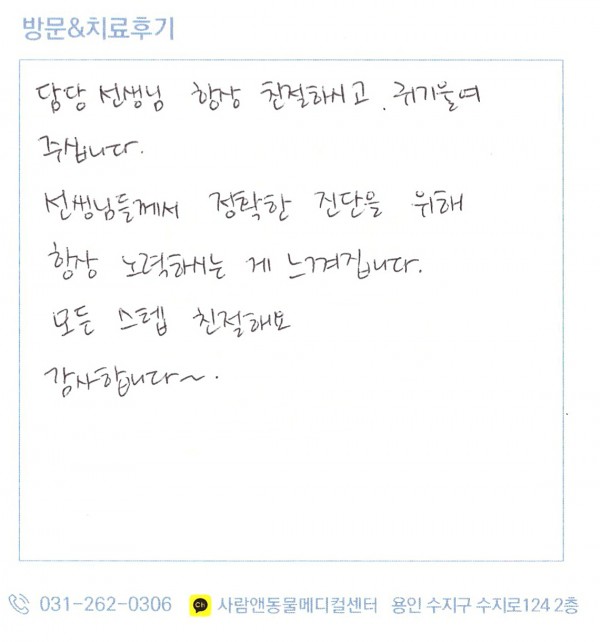 방문&치료후기
담당 선생님 항상 친절하시고, 귀기울여
주십니다.
선생님들께서 정확한 진단을 위해
항상 노력하시는 게 느껴집니다.
모든 스텝 친절해요
감사합니다~.
031-262-0306 Ch 사람앤동물메디컬센터 용인 수지구 수지로124 2층